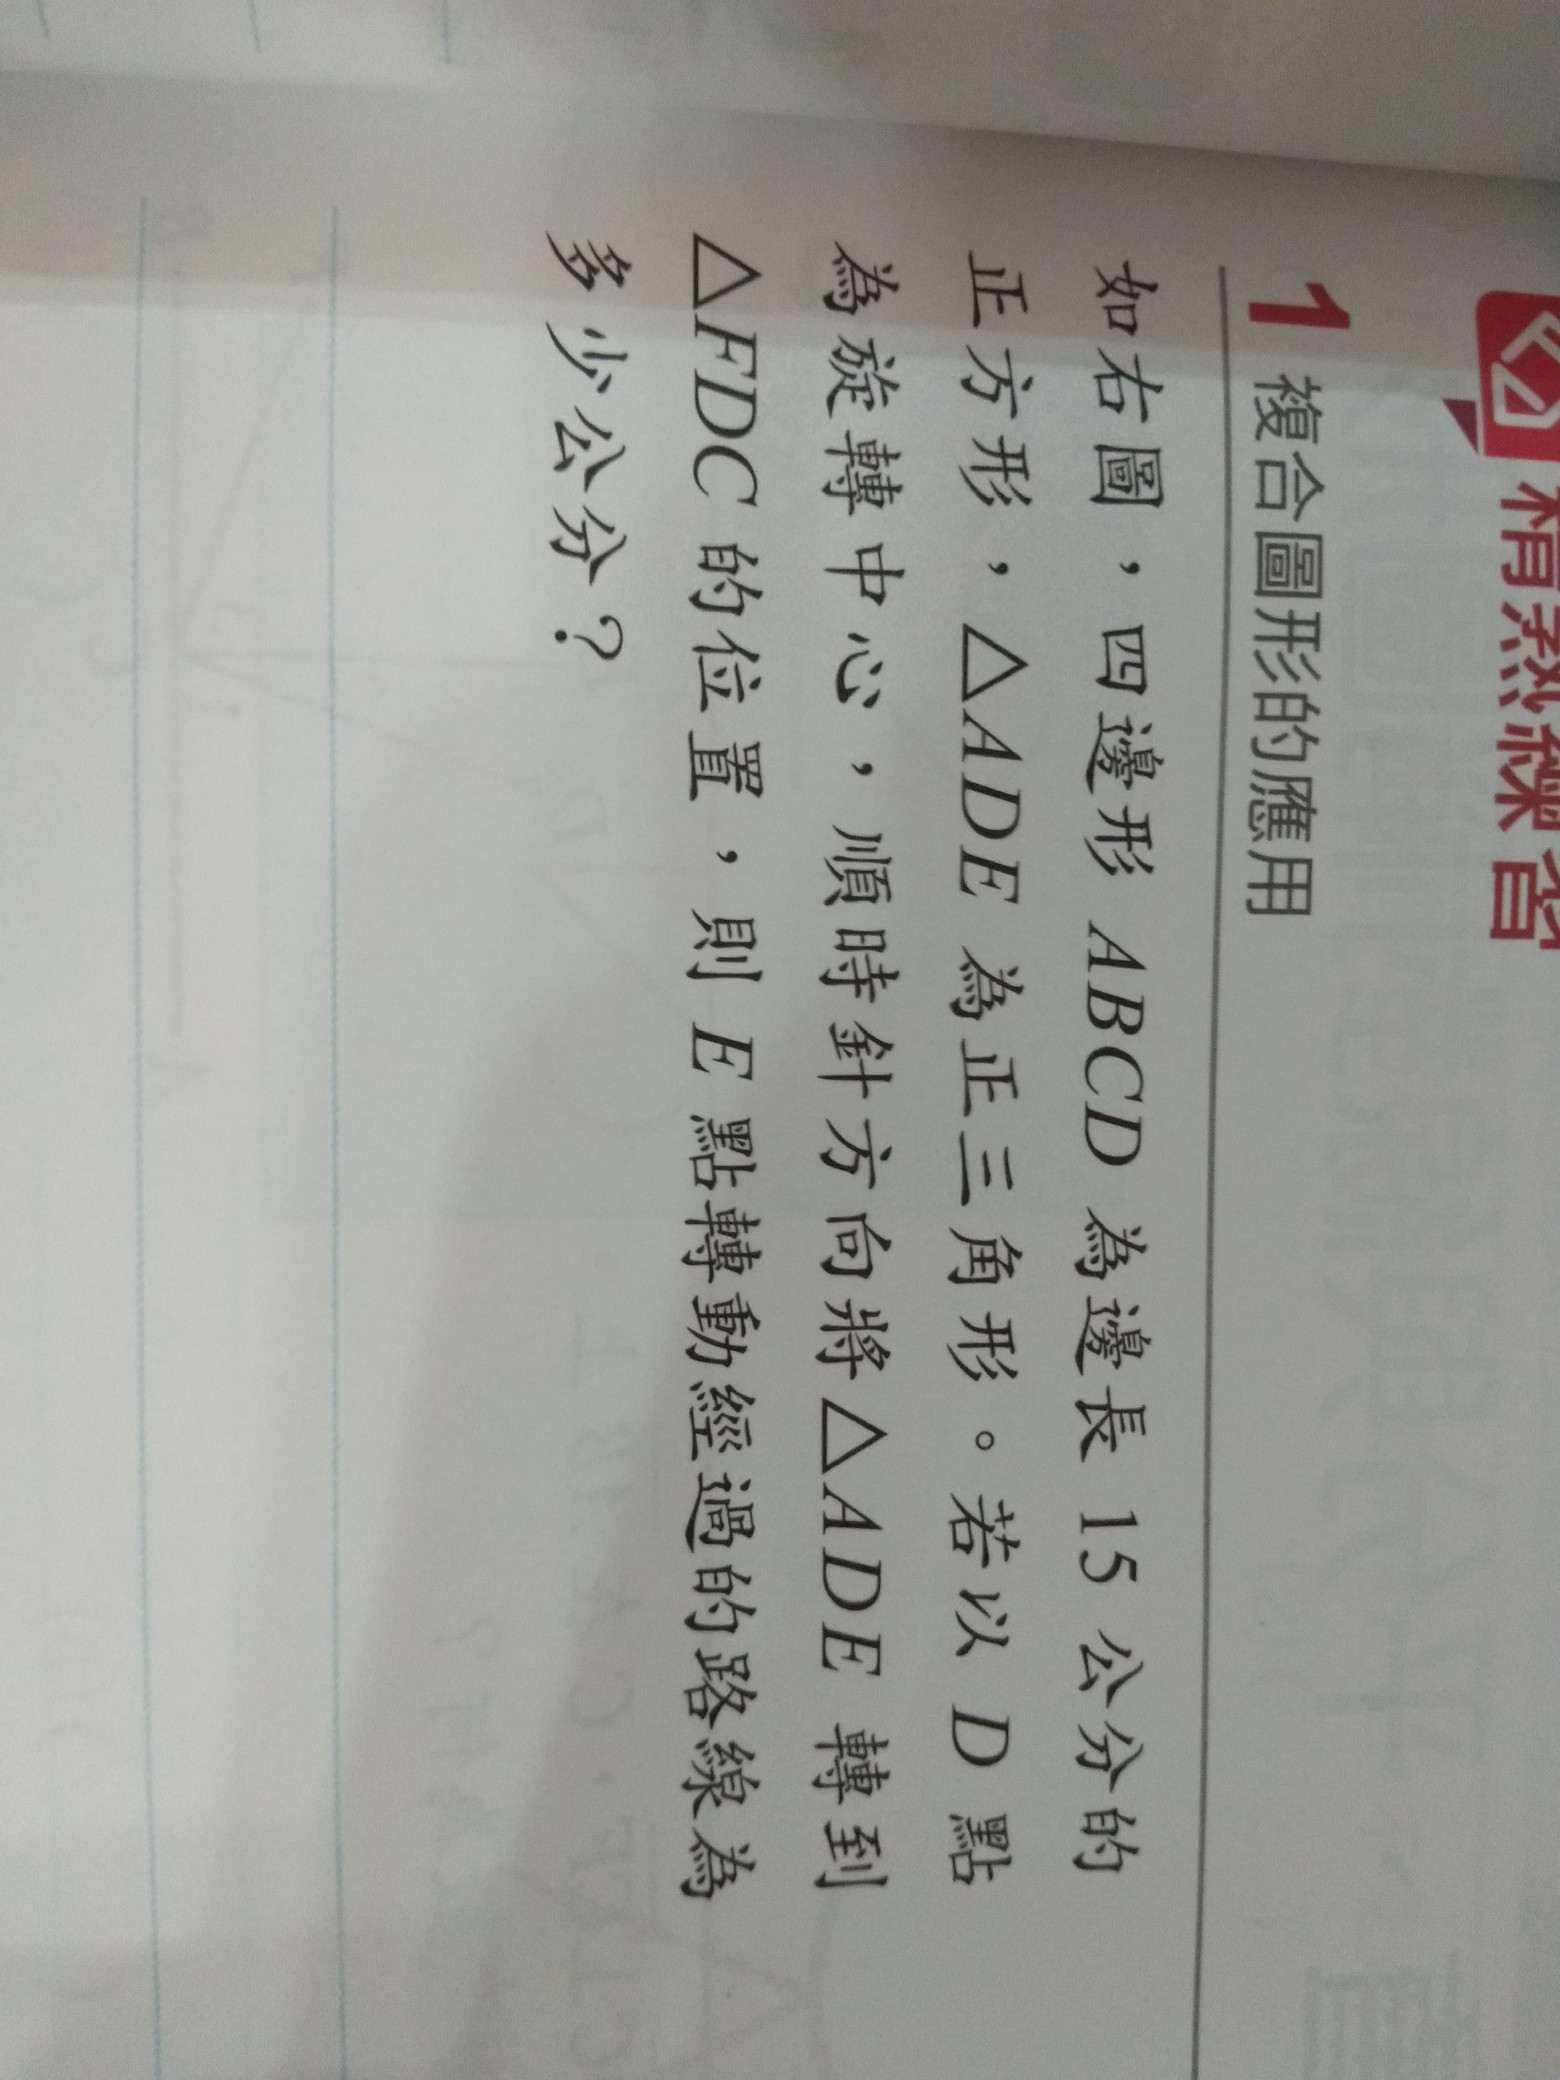 精熟練習
1 複合圖形的應用
如右圖，四邊形 ABCD 為邊長 15 公分的
正方形，△ADE 為正三角形。若以 D 點
為旋轉中心，順時針方向將△ADE 轉到
△FDC 的位置，則 E 點轉動經過的路線為
多少公分？